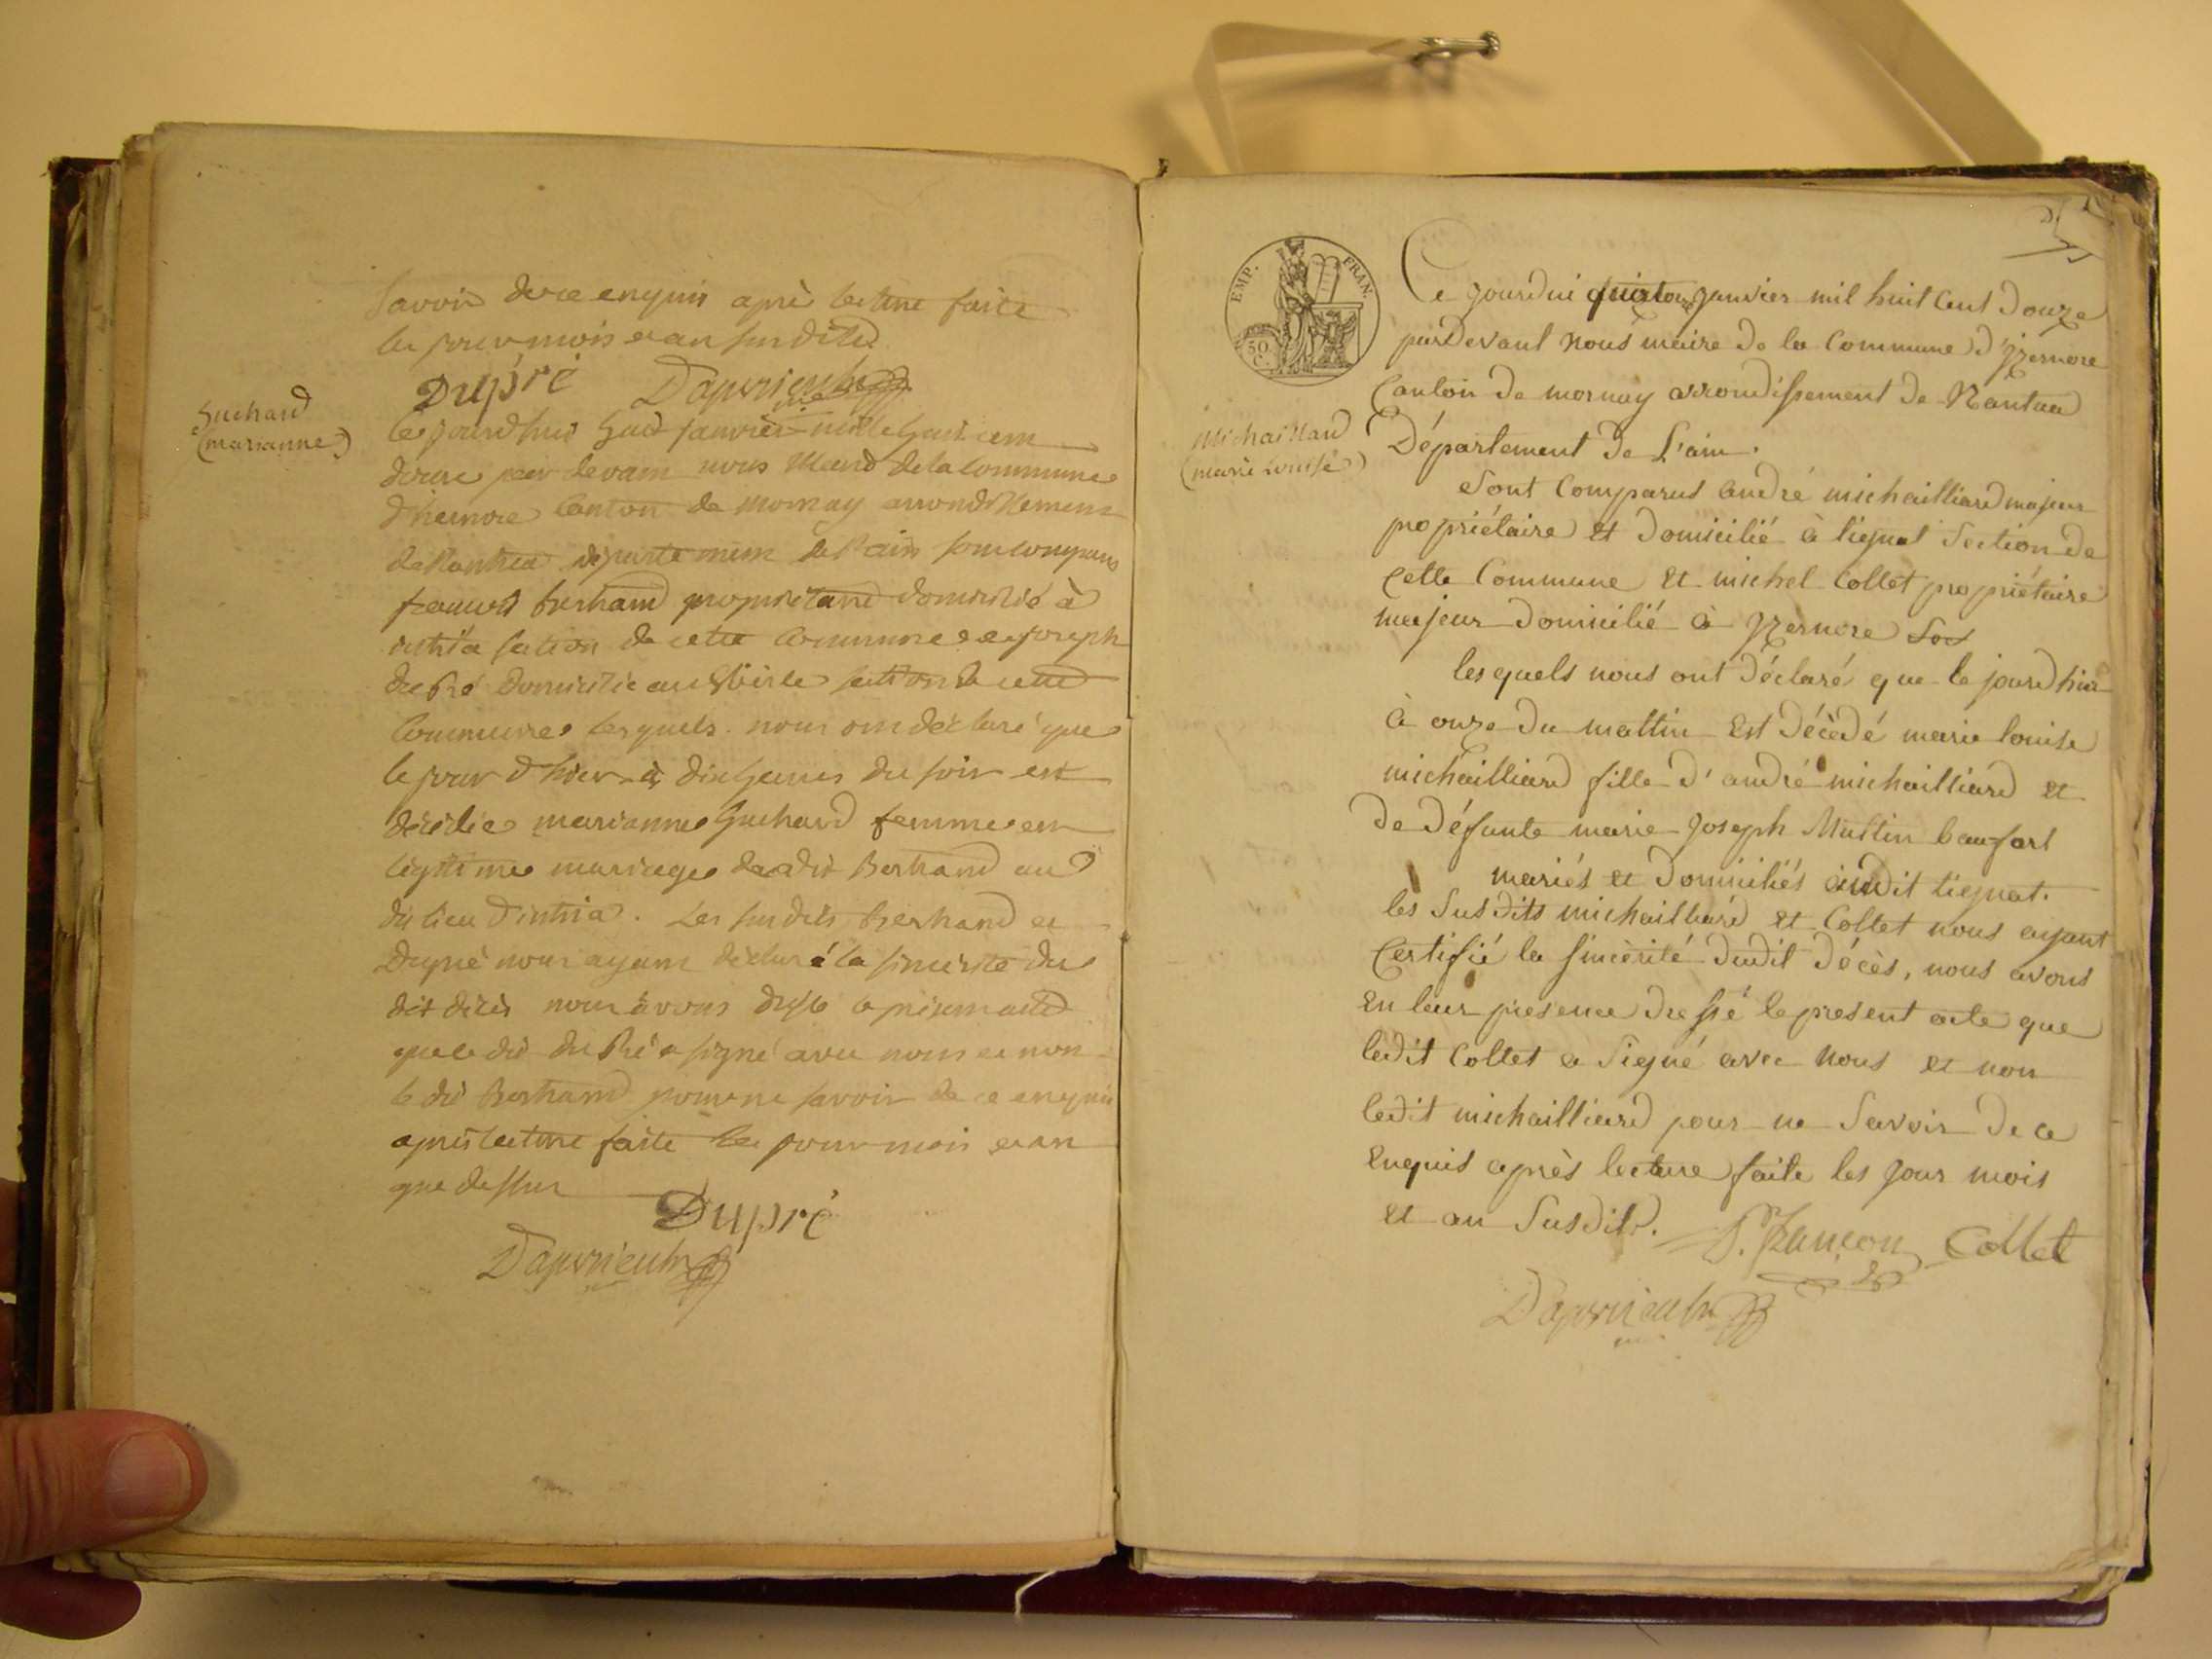 Savoir de ce enquis après lecture faite
les jour mois et an susdits
Dupré
Guchard
(marianne)
le jourd'hui huit janvier mille huit cent
douze par devant nous Maire de la Commune
d'hernore Canton de mornay arrondissement
de Nantua département de l'ain sont comparus
françois Bertrand propriétaire domicilié à
intria section de cette Commune et joseph
du Pré domicilié au section de cette
Commune lesquels nous ont déclaré que
le jour d'hier à dix heures du soir est
décédée marianne Guchard femme en
légitime mariage dudit Bertrand au
dit lieu d'intria. Les susdits Bertrand et
Dupré nous ayant déclaré la sincérité du
dit décès nous avons dressé le présent acte
que le dit du Pré a signé avec nous et non
le dit Bertrand pour ne savoir de ce enquis
après lecture faite les jour mois et an
que dessus
Dupré
EMP. FRAN.
50
C.
michaillard
(marie louise)
Ce jourdui quatorze janvier mil huit cent douze
pardevant nous maire de la Commune d'Izernore
Canton de mornay arrondissement de Nantua
Département de L'ain.
Sont Comparus andré michailliard majeur
propriétaire et Domicilié à tignat Section de
cette Commune et michel Collet propriétaire
majeur Domicilié à Izernore
lesquels nous ont Déclaré que le jourd'hier
à onze du mattin Est Décédé marie louise
michailliard fille d'andré michailliard et
de Défunte marie Joseph Mattin beaufort
mariés et Domiciliés audit tignat.
les Susdits michailliard et Collet nous ayant
Certifié la sincérité dudit Décès, nous avons
En leur présence Dressé le present acte que
ledit Collet a Signé avec nous et non
ledit michailliard pour ne Savoir de ce
Enquis après lecture faite les jour mois
et an Susdits.
Collet